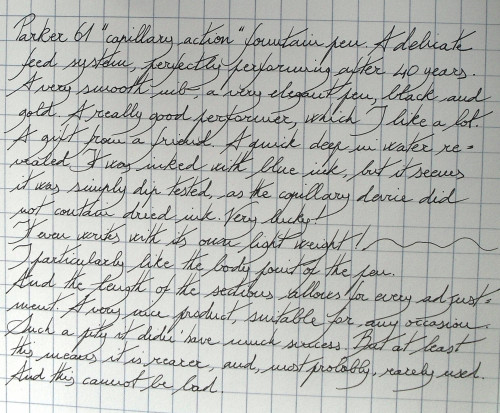 Parker 61 "capillary action" fountain pen. A delicate
feed system, perfectly performing after 40 years.
A very smooth nib, a very elegant pen, black and
gold. A really good performer, which I like a lot.
A gift from a friend. A quick deep in water re=
vealed it was inked with blue ink, but it seems
it was simply dip tested, as the capillary device did
not contain dried ink. Very lucky!
It even writes with its own light weight!
I particularly like the body point of the pen.
And the length of the sections allows for every adjust=
ment. A very nice product, suitable for any occasion.
Such a pity it didn't have much success. But at least
this means it is rearer, and, most probably, rarely used.
And this cannot be bad.